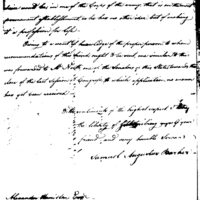 him would be in one of the Corps of the army that is on the most
permanent establishment as he has no other idea but of making
it a profession for life.
Owing to a want of knowledge of the proper person to whom
recommendations of this kind ought to be sent, one similar to this
was forwarded to Mr North one of the Senators of this State towards the
close of the last Session of Congress to which application no answer
has yet been received.
the highest respect I
the liberty of being your
friend, and very humble Servant
Samuel Augustus Barker
Alexander Hamilton Esqr.